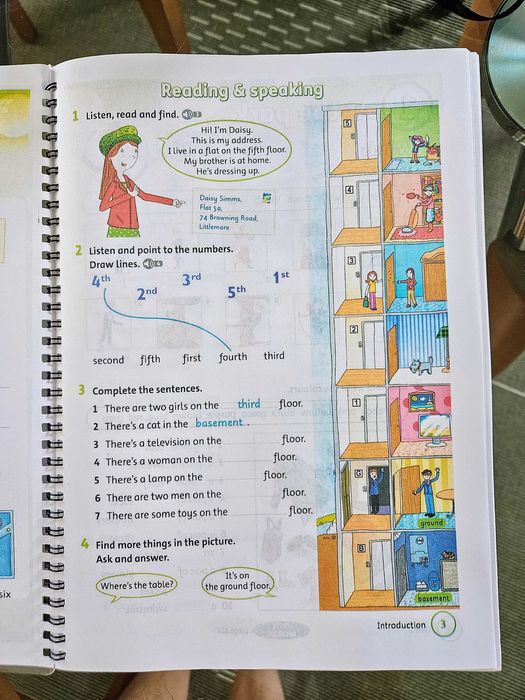 Reading & speaking
1 Listen, read and find. 3
Hi! I'm Daisy.
This is my address.
I live in a flat on the fifth floor.
My brother is at home.
He's dressing up.
Daisy Simms,
Flat 5a,
74 Browning Road,
Littlemore
2 Listen and point to the numbers.
Draw lines. 4
4th 2nd 3rd 5th 1st
second fifth first fourth third
3 Complete the sentences.
1 There are two girls on the third floor.
2 There's a cat in the basement.
3 There's a television on the floor.
4 There's a woman on the floor.
5 There's a lamp on the floor.
6 There are two men on the floor.
7 There are some toys on the floor.
4 Find more things in the picture.
Ask and answer.
Where's the table?
It's on
the ground floor.
5
4
3
2
1
G
ground
B
basement
Introduction 3
six